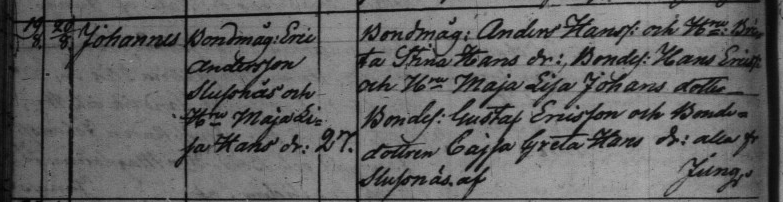 19/8 20/8 Johannes
Bondmåg: Eric
Andersson
Slusonäs och
Hru Maja Li-
sa Hans dr: 27.
Bondmåg: Anders Hanss: och Hru: Bri-
ta Stina Hans dr:, Bondes: Hans Ericss:
och Hru Maja Lisa Johans dotter
Bondes: Gustaf Ericsson och Bonde-
dottren Cajsa Greta Hans dr: alla fr
Slusonäs. af Jung.